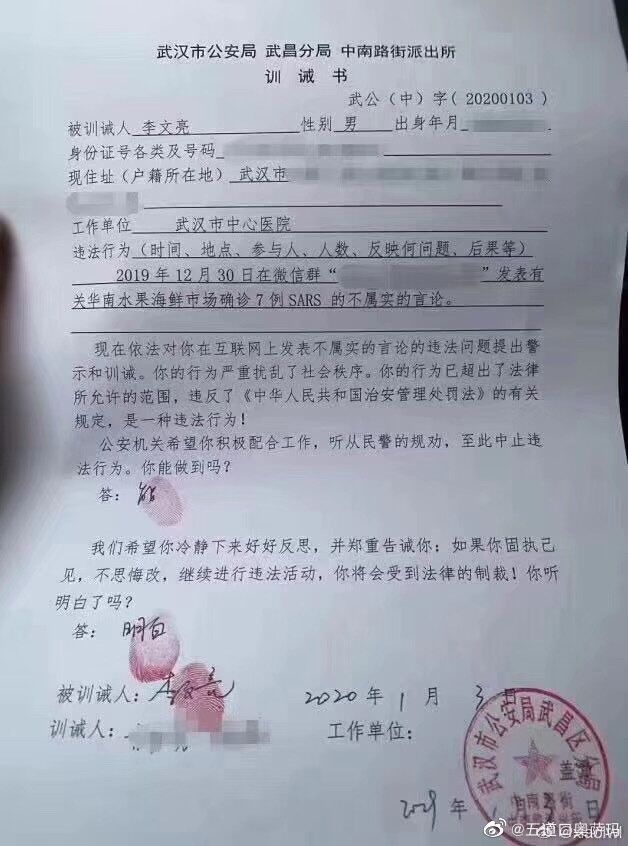 武汉市公安局 武昌分局 中南路街派出所
训 诫 书
武公（中）字（20200103）
被训诫人 李文亮 性别 男 出身年月
身份证号各类及号码
现住址（户籍所在地） 武汉市
工作单位 武汉市中心医院
违法行为（时间、地点、参与人、人数、反映何问题、后果等）
2019年12月30日在微信群“ ”发表有
关华南水果海鲜市场确诊7例SARS的不属实的言论。
现在依法对你在互联网上发表不属实的言论的违法问题提出警
示和训诫。你的行为严重扰乱了社会秩序。你的行为已超出了法律
所允许的范围，违反了《中华人民共和国治安管理处罚法》的有关
规定，是一种违法行为！
公安机关希望你积极配合工作，听从民警的规劝，至此中止违
法行为。你能做到吗？
答：能
我们希望你冷静下来好好反思，并郑重告诫你：如果你固执己
见，不思悔改，继续进行违法活动，你将会受到法律的制裁！你听
明白了吗？
答：明白
被训诫人：李文亮 2020年1月3日
训诫人： 工作单位：
武汉市公安局武昌区分局
盖章
中南路街
年 月 日
@五道口奥萨玛